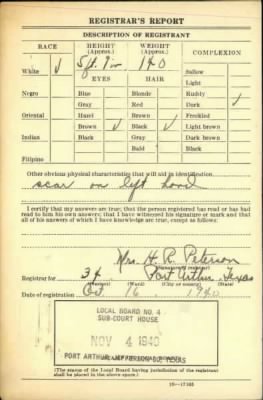 REGISTRAR'S REPORT
DESCRIPTION OF REGISTRANT
RACE HEIGHT (Approx.) WEIGHT (Approx.) COMPLEXION
White ✓ 5 ft. 140 Sallow
EYES HAIR Light
Negro Blue Blonde Ruddy
Gray Red Dark ✓
Oriental Hazel Brown Freckled
Brown ✓ Black ✓ Light brown
Indian Black Gray Dark brown
Bald Black
Filipino
Other obvious physical characteristics that will aid in identification
scar on left hand
I certify that my answers are true; that the person registered has read or has had
read to him his own answers; that I have witnessed his signature or mark and that
all of his answers of which I have knowledge are true, except as follows:
Mrs. H. R. Peterson
(Signature of registrar)
Registrar for 34 Port Arthur, Texas
(Precinct) (Ward) (City or county) (State)
Date of registration Oct. 16 1940
LOCAL BOARD NO. 4
SUB-COURT HOUSE
NOV 4 1940
PORT ARTHUR, JEFFERSON CO. TEXAS
(The stamp of the Local Board having jurisdiction of the registrant
shall be placed in the above space.)